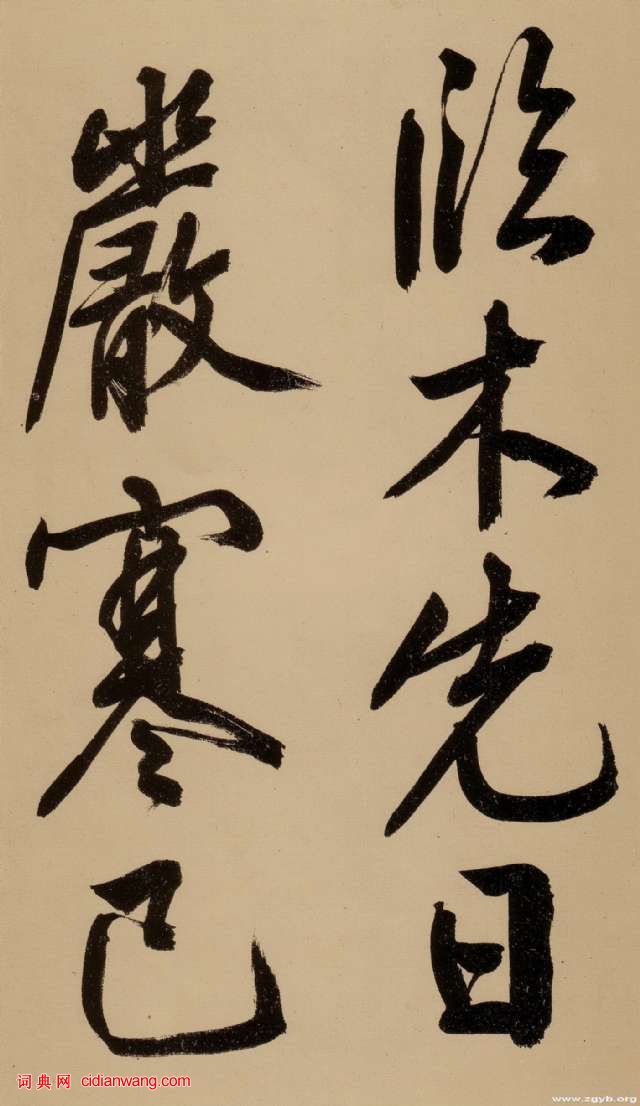 臨木先日
巖寒已
词典网 cidianwang.com
www.zgyb.org